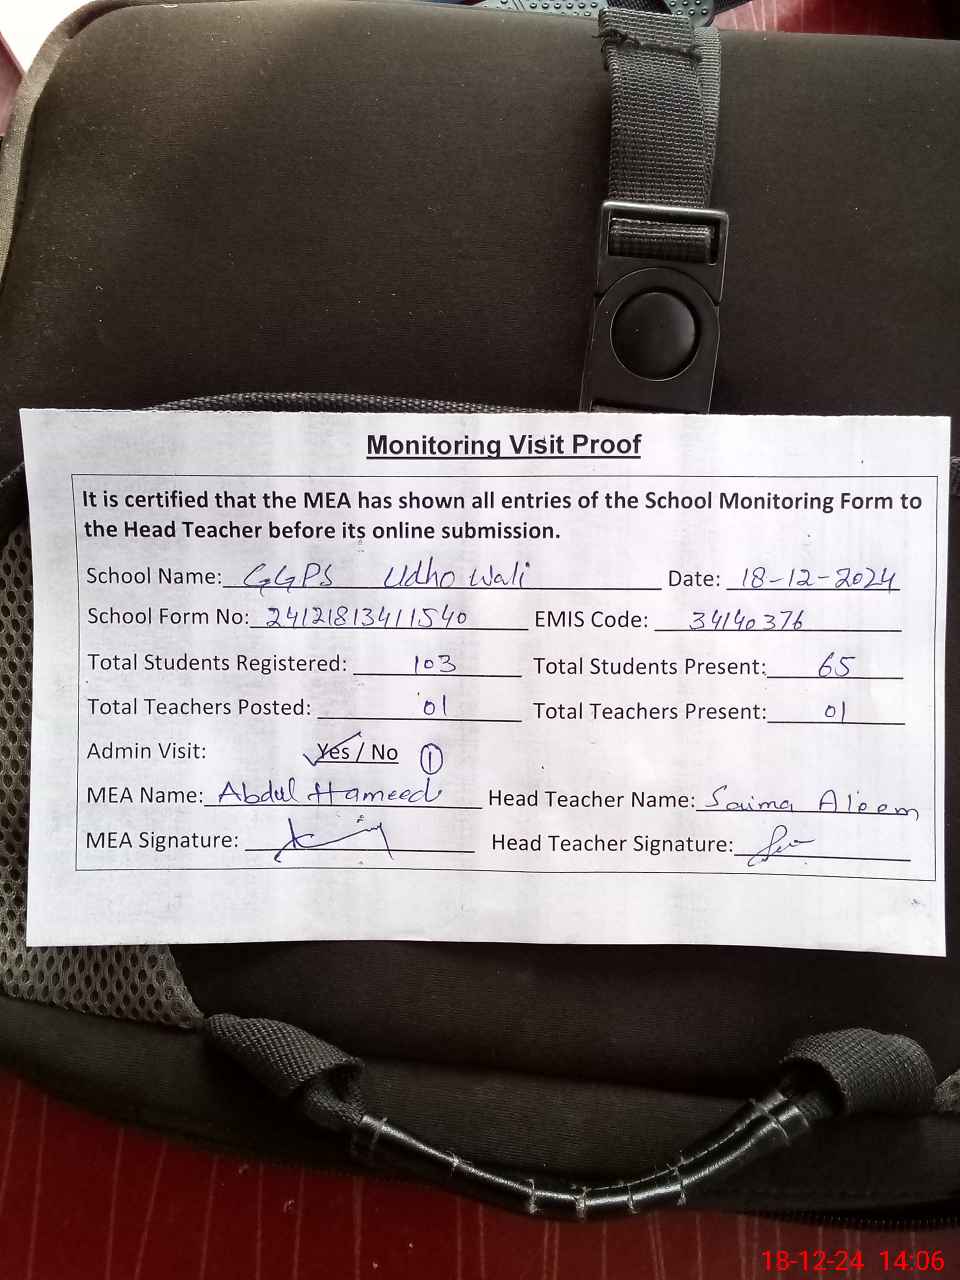 Monitoring Visit Proof
It is certified that the MEA has shown all entries of the School Monitoring Form to
the Head Teacher before its online submission.
School Name: GGPS Udho Wali Date: 18-12-2024
School Form No: 2412181341​1540 EMIS Code: 34140376
Total Students Registered: 103 Total Students Present: 65
Total Teachers Posted: 01 Total Teachers Present: 01
Admin Visit: Yes / No 1
MEA Name: Abdul Hameed Head Teacher Name: Saima Aleem
MEA Signature: Head Teacher Signature:
18-12-24 14:06